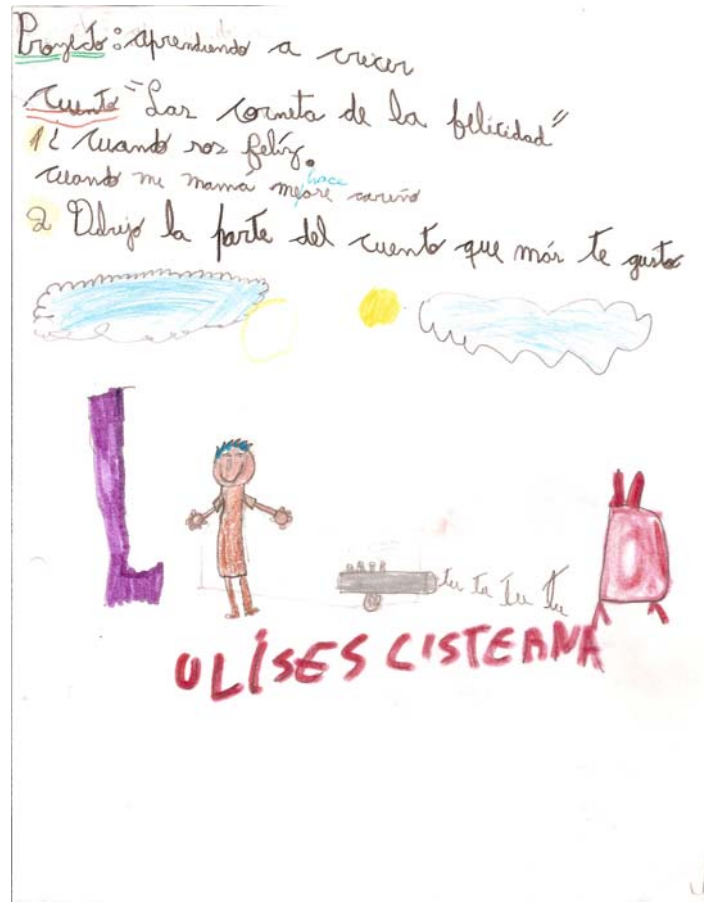 Proyecto: Aprendiendo a crecer
Cuento "Las corneta de la felicidad"
1 ¿ Cuando sos felíz.
cuando me mamá me hace cariño
2 Dibujo la parte del cuento que más te gusto
tu tu tu tu
ULÍSES CISTERNA